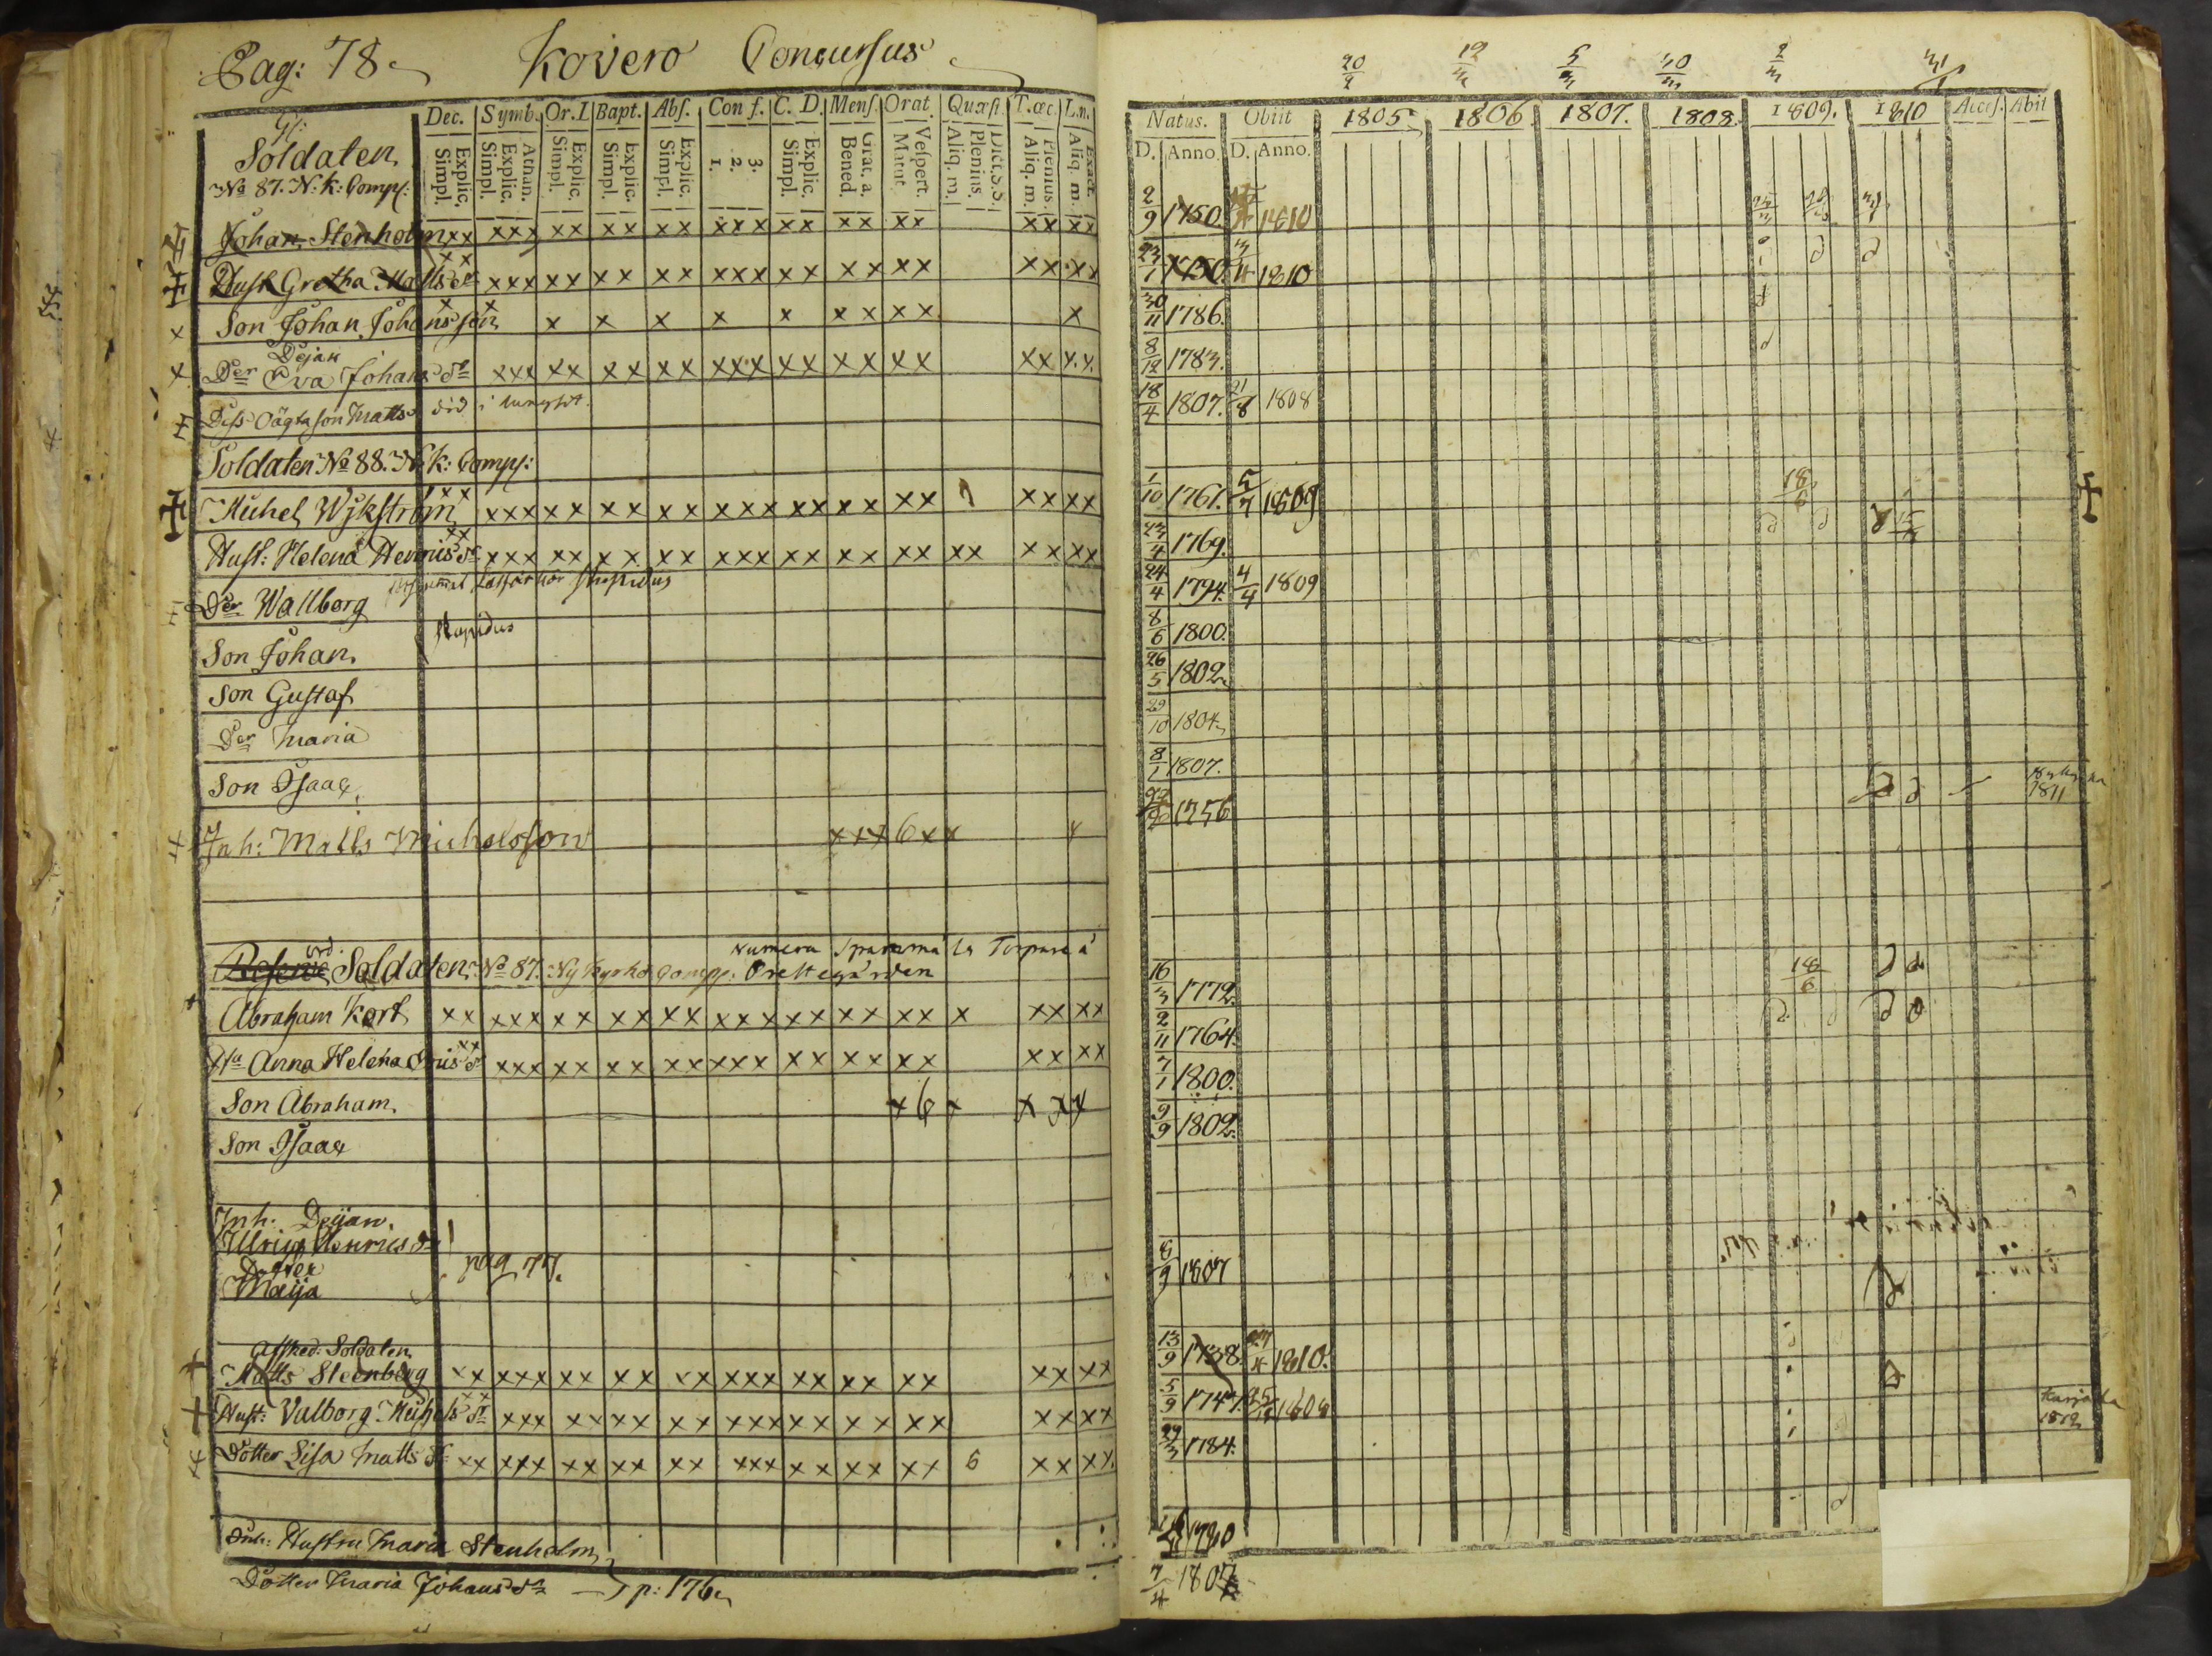 Pag: 78. Kovero Concursus
20/2 12/3 5/3 30/3 2/3 31/1
Dec. Symb. Or. I Bapt. Abs. Con f. C. D. Mens. Orat. Quæst. T. œc. L.n.
Natus. Obiit 1805. 1806. 1807. 1808. 1809. 1810 Access. Abiit
D. Anno. D. Anno.
Explic. Simpl. Athan. Explic. Simpl. Explic. Simpl. Explic. Simpl. Explic. Simpl. 3. 2. 1. Explic. Simpl. Grat. a. Bened. Vespert. Matut. Dict. S.S. Plenius. Aliq. m. Plenius. Aliq. m. Exact. Aliq. m.
Soldaten
No 87. N: k: Comp:
Johan Stenholm xx xxx xx xx xx xxx xx xx xx xx xx 2/9 1750 1810
Hust Gretha Matts dr xx xxx xx xx xx xxx xx xx xx xx xx 23/1 1750 1810
Son Johan Johansson x x x x x x x xx xx x 30/11 1786.
Dejan
Der Eva Johans dr xxx xx xx xx xxx xx xx xx xx x.x. 8/12 1783.
Dess Oägta son Matts död i 18/4 1807. 21/8 1808
Soldaten No 88. N: k: Comp:
Michel Wikström xx xxx xx xx xx xxx xx xx xx xx xx 1/10 1761. 5/7 1809 18/6
Hust: Helena Henrics dr xx xxx xx xx xx xxx xx xx xx xx xx xx 23/4 1769.
stupidus
Der Wallborg 24/4 1794. 4/4 1809
stupidus
Son Johan. 8/6 1800.
Son Gustaf 26/5 1802.
Der Maria 29/10 1804.
Son Isaac 8/1 1807.
Inh: Matts Michelsson xxx 6 xx x 1756 1811
numera Torpare å
Reserve ord. Soldaten No 87. Nykyrko Comp: Prestegården
Abraham Kort xx xxx xx xx xx xxx xx xx xx x xx xx 16/3 1772. 18/6
Hu Anna Helena dr xx xxx xx xx xx xxx xx xx xx xx xx 2/11 1764.
Son Abraham. x 6 x x xx 7/1 1800.
Son Isaac 9/9 1802.
Inh. Dejan.
Ulrica Henrics dr
Dotter pag 77.
Maija 6/9 1807
Afsked: Soldaten
Matts Steenberg xx xxx xx xx xx xxx xx xx xx xx xx 13/9 1738. 1810.
Hust: Valborg Michels dr xx xxx xx xx xx xxx xx xx xx xx xx 5/9 1747 1808
Dotter Lisa Matts dr xx xxx xx xx xx xxx xx xx xx 6 xx xx 29/3 1784. 1812
Inh: Hustru Maria Stenholm
Dotter Maria Johans dr p: 176. 7/4 1807